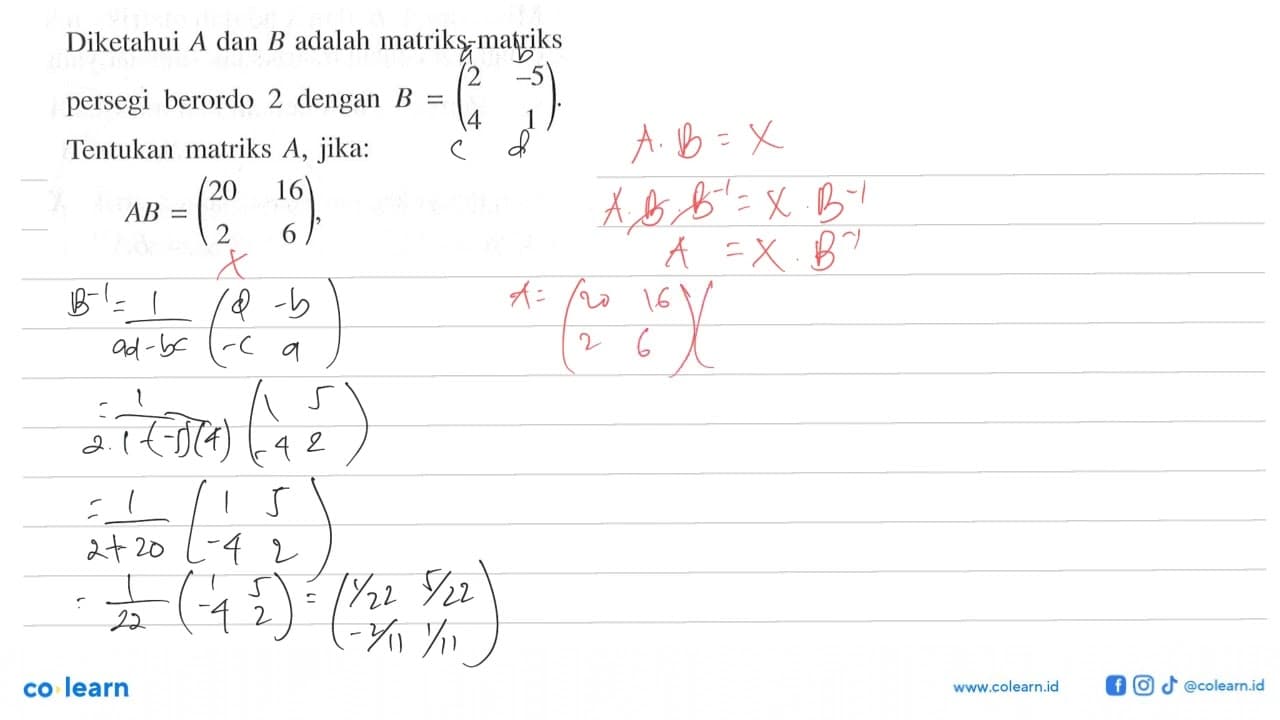 Diketahui A dan B adalah matriks-matriks
a b
persegi berordo 2 dengan B = (2 -5
4 1).
c d
Tentukan matriks A, jika:
AB = (20 16
2 6),
X
A. B = X
A. B. B^-1 = X . B^-1
A = X . B^-1
A = (20 16
2 6) (
B^-1 = 1/ad-bc (d -b
-c a)
= 1/2.1-(-5)(4) (1 5
-4 2)
= 1/2+20 (1 5
-4 2)
= 1/22 (1 5
-4 2) = (1/22 5/22
-2/11 1/11)
co learn
www.colearn.id
@colearn.id